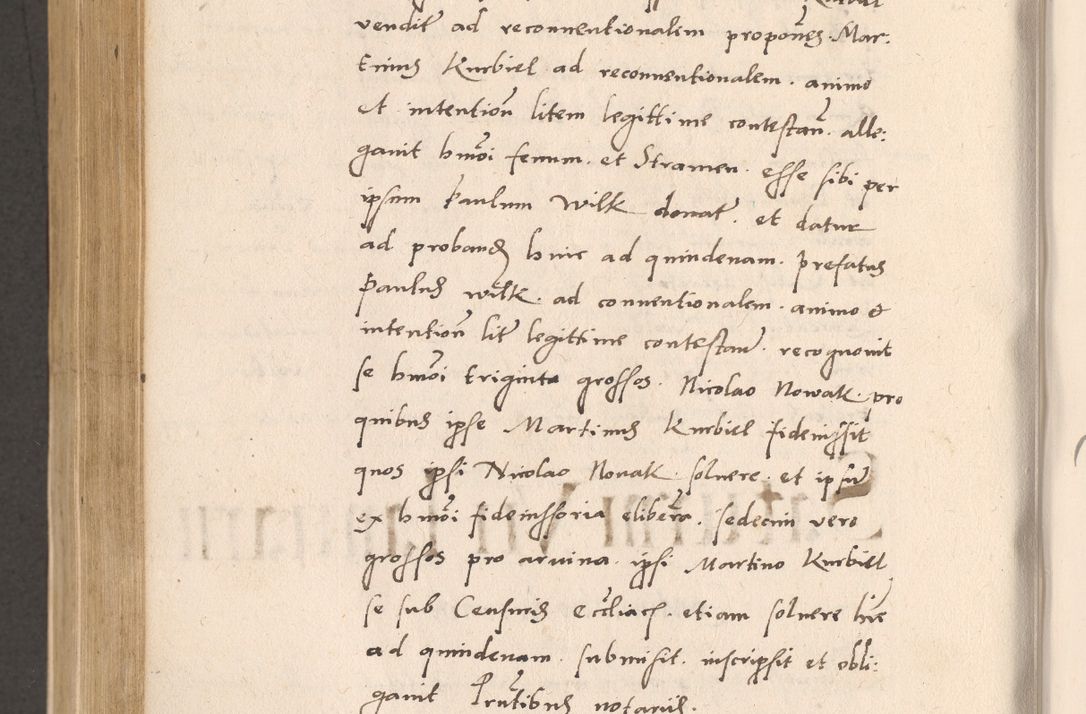 vendit ad reconventionalem proponens. Mar:
tinus Kurbiel ad reconventionalem. animo
et intention litem legittime contestan. alle:
gavit hmoi fenum. et Stramen. esse sibi per
ipsum Paulum Wilk donat. et datur
ad proband hinc ad quindenam. Prefatus
Paulus Wilk. ad conventionalem. animo et
intention lit legittime contestan. recognovit
se hmoi triginta grossos. Nicolao Nowak. pro
quibus ipse Martinus Kurbiel fideiussit
quos ipsi Nicolao Novak. solvere. et ipsum
ex hmoi fideiussoria elibera. sedecim vero
grossos pro arvina. ipsi Martino Kurbiel
se sub Censuris Eccliacs. etiam solvere hinc
ad quindenam. submisit. inscripsit et obli:
gavit Prntibus notariis.